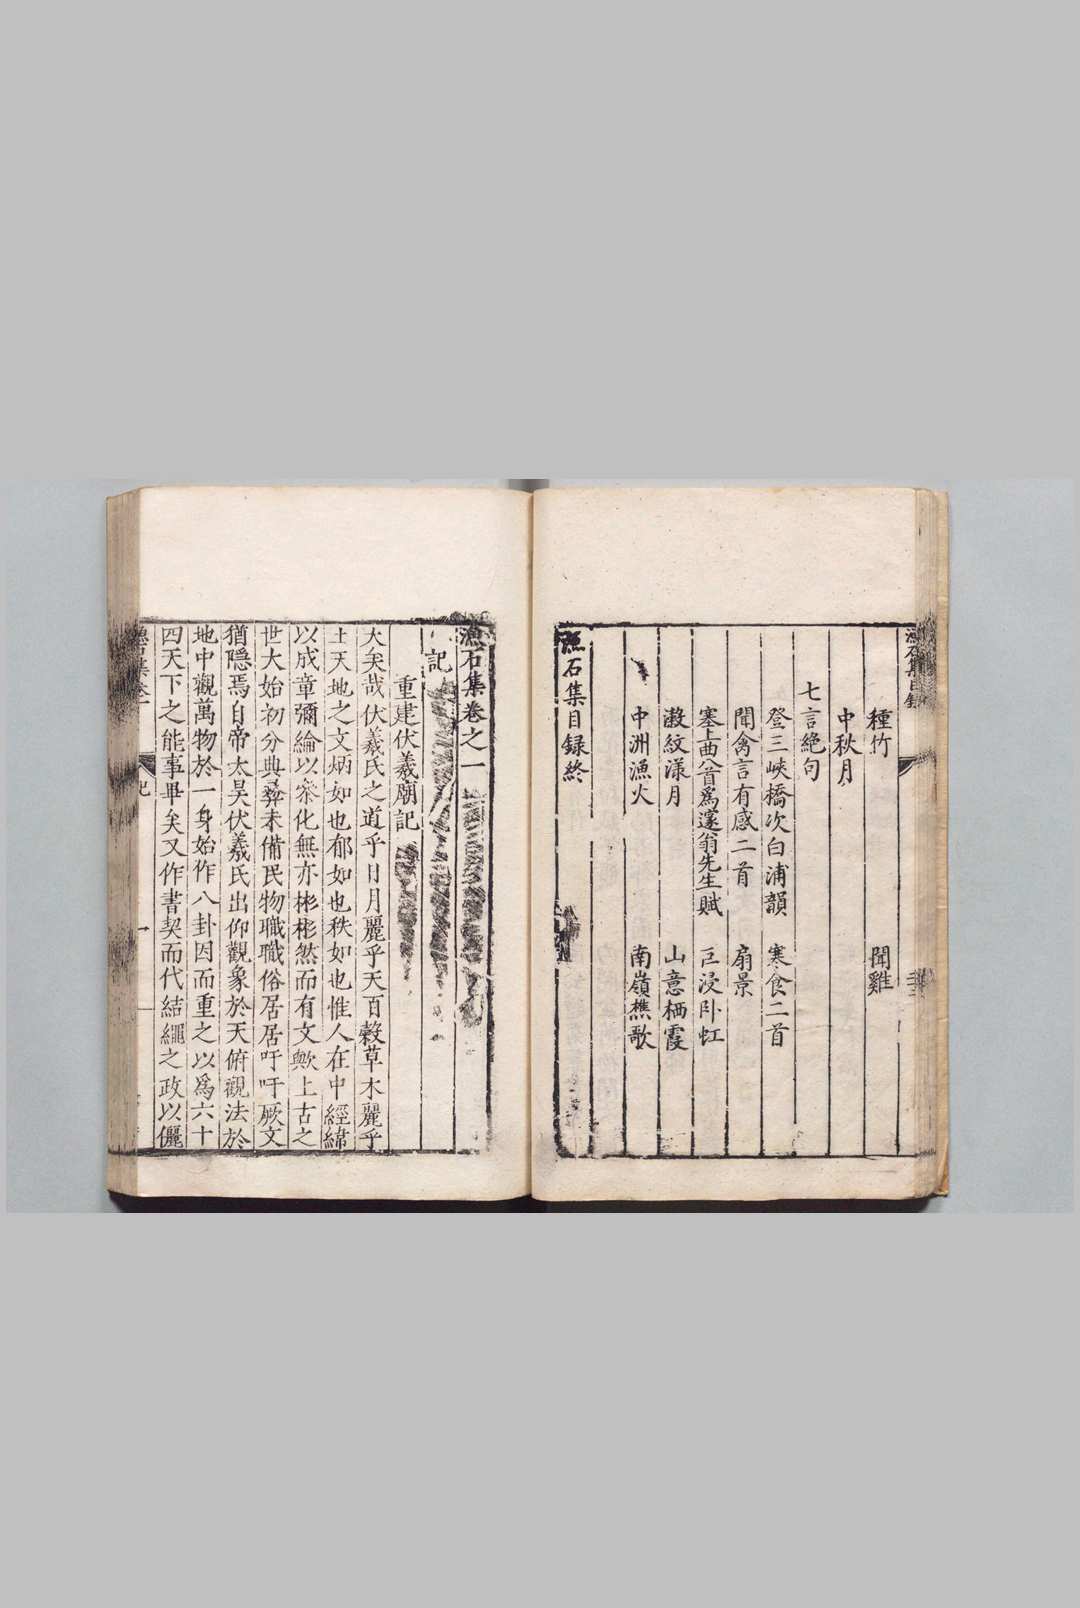 漁石集目錄
種竹　聞雞
中秋月
七言絕句
登三峽橋次白浦韻　寒食二首
聞禽言有感二首　扇景
塞上曲八首爲邃翁先生賦　巨浸卧虹
漱紋漾月　山意栖霞
中洲漁火　南嶺樵歌
漁石集目録終
漁石集卷之一
記
重建伏羲廟記
大矣哉伏羲氏之道乎日月麗乎天百穀草木麗乎
土天地之文炳如也郁如也秩如也惟人在中經緯
以成章彌綸以叅化無亦彬彬然而有文歟上古之
世大始初分典彝未備民物職職俗居居吁吁厥文
猶隱焉自帝太昊伏羲氏出仰觀象於天俯觀法於
地中觀萬物於一身始作八卦因而重之以爲六十
四天下之能事畢矣又作書契而代結繩之政以儷
漁石集卷一　記　一